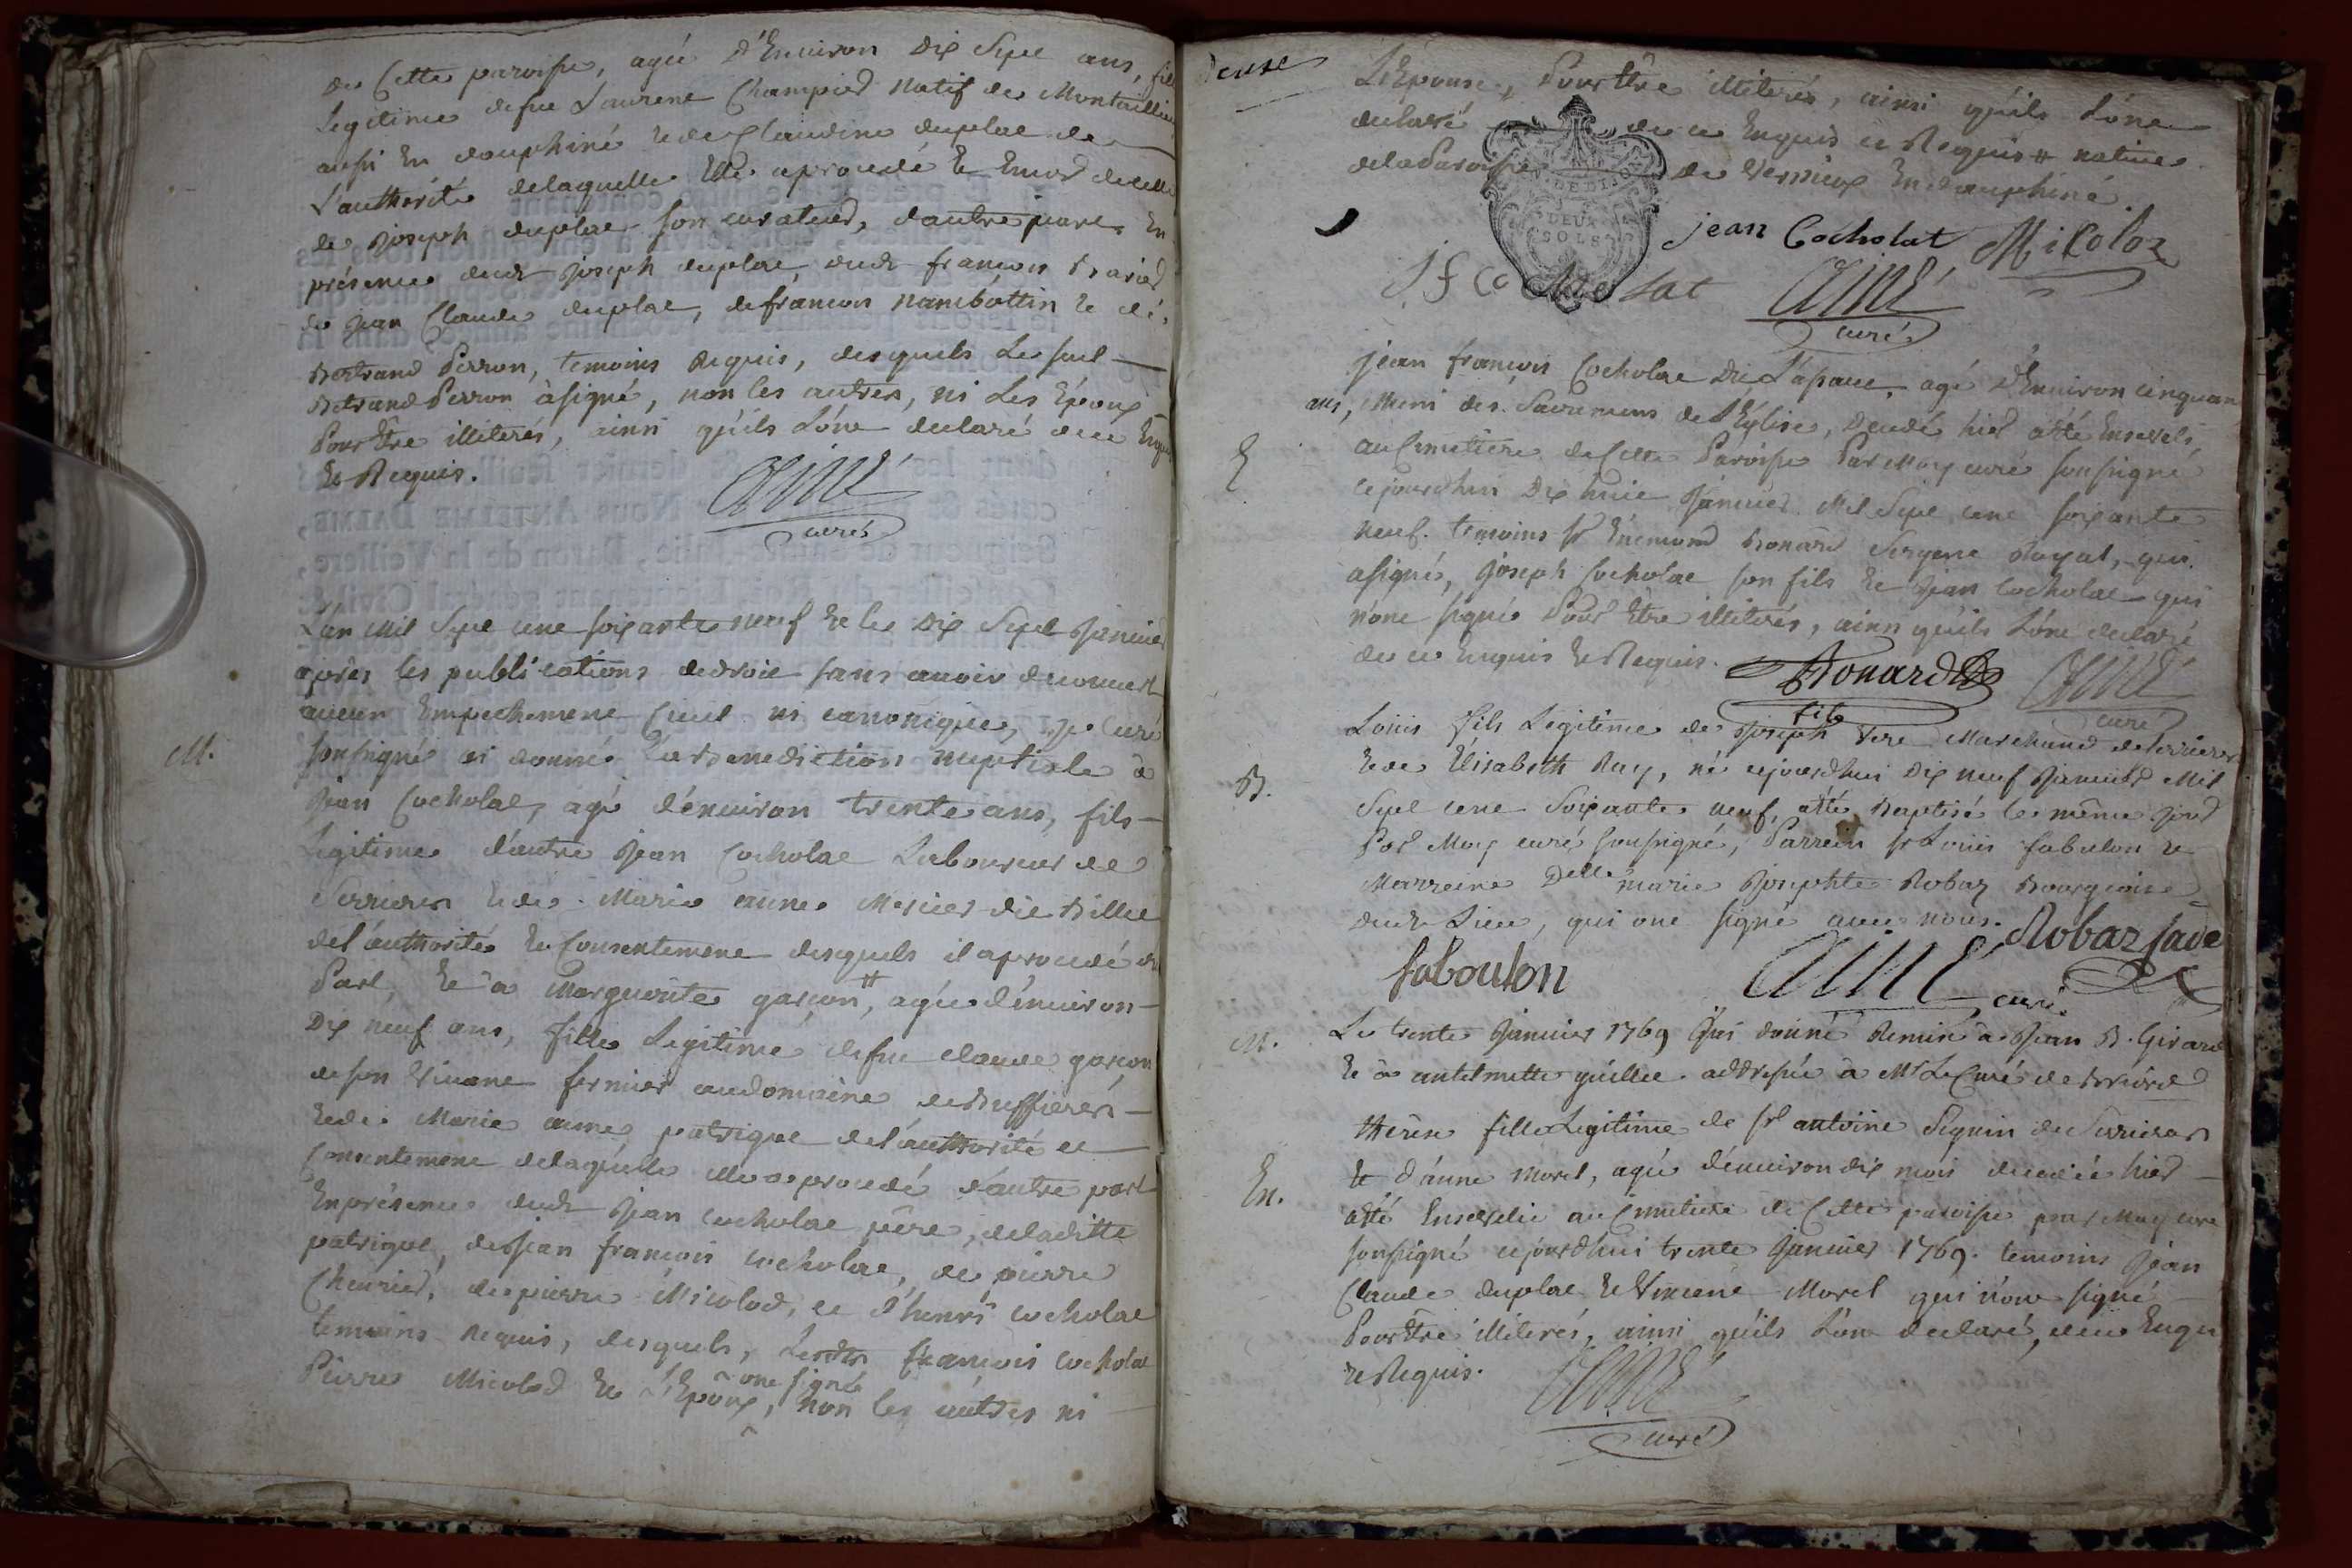 de Cette paroisse, agée d'Environ Dix Sept ans, fille
Legitime defeu Laurent Champied Natif de Montaillieu
aussi En dauphiné et de Claudine duplat de
l'authorité delaquelle Elle aprocedé Et Encor decelle
de Joseph duplat son curateur, dautre part. En
présence dudt Joseph duplat, dudt francois
de Jean Claude duplat, de francois Nambottin et de
Bertrand Perron, temoins Requis, desquels Le seul
Betrand Perron àsigné, non les autres, ni Les Epoux
Pour Etre illiterés, ainsi qu'ils L'ont declaré de ce Enquis
Et Requis.
AIMÉ
curé
L'an Mil Sept cent soixante neuf Et le Dix Sept Janvier
après les publications dedroit sans avoir decouvert
aucun Empechement Civil ni canonique, Je Curé
M.
soussigné ai donné La Benediction nuptiale à
Jean Cocholat, agé d'environ trente ans, fils
Legitime d'autre Jean Cocholat Laboureur de
Serrieres et de Marie anne Mercier dit Billet
del'authorité Et Consentement desquels il aprocedé d'une
Part, Et à Marguerite garçon #, agée d'environ
Dix neuf ans, fille Legitime defeu claude garçon
deson Vivant fermier audomaine de Buffieres
et de Marie anne patrique del'authorité et
Consentement delaquelle elle aprocedé d'autre part
En présence dudt Jean cocholat père, deladitte
patrique, de Jean francois cocholat, de pierre
Chevrier, de pierre Micolod, et d'henri cocholat
temoins Requis, desquels, Lesdts francois cocholat
Pierre Micolod Et L'Epoux, ont signé non les autres ni
L'Epouse, Pour Etre illiterés, ainsi qu'ils L'ont
declaré de ce Enquis et Requis # native
delaParoisse de Vernieux En dauphiné.
DEUX
SOLS
jean Cocholat Mikoloz
J f Cocholat AIMÉ
curé
Jean francois Cocholat Dit Lapause, agé D'Environ cinquante
ans, Muni des Sacremens de L'Eglise, Decedé hier aété Enseveli
E
auCimetiere de Cette Paroisse Par Moy curé soussigné
cejourdhui Dix huit Janvier Mil Sept cent soixante
neuf. temoins Sr Enemond Bonard Sergent Royal, qui
asigné, Joseph Cocholat son fils Et Jean Cocholat qui
n'ont signé Pour Etre illiterés, ainsi qu'ils L'ont declaré
de ce Enquis Et Requis. Bonard AIMÉ
fils curé
Loüis fils Legitime de Joseph Marchand de Serrieres
B.
et de Elisabeth Ruy, né cejourdhui Dix neuf Janvier Mil
Sept cent Soixante neuf, aété Baptisé le même jour
Par Moy curé soussigné, Parrein Sr Loüis fabulon et
Marreine Delle marie Josephte Robaz Bourgeoise
dudt Lieu, qui ont signé avec nous. Robaz
faboulon AIMÉ curé.
M. Le trente Janvier 1769 J'ai donné Remise à Jean B. Girard
Et à antelmette addressée à Mr Le Curé de Briord
therese fille Legitime de Sr antoine Seguin de Serrieres
En. Et d'anne Morel, agée d'environ dix mois decedée hier
aété Ensevelie auCimetiere de Cette paroisse par Moy curé
soussigné cejourdhui trente Janvier 1769. temoins Jean
Claude duplat Et Vincent Morel qui n'ont signé
Pour Etre illiterés, ainsi qu'ils L'ont declaré, de ce Enquis
et Requis. AIMÉ
curé